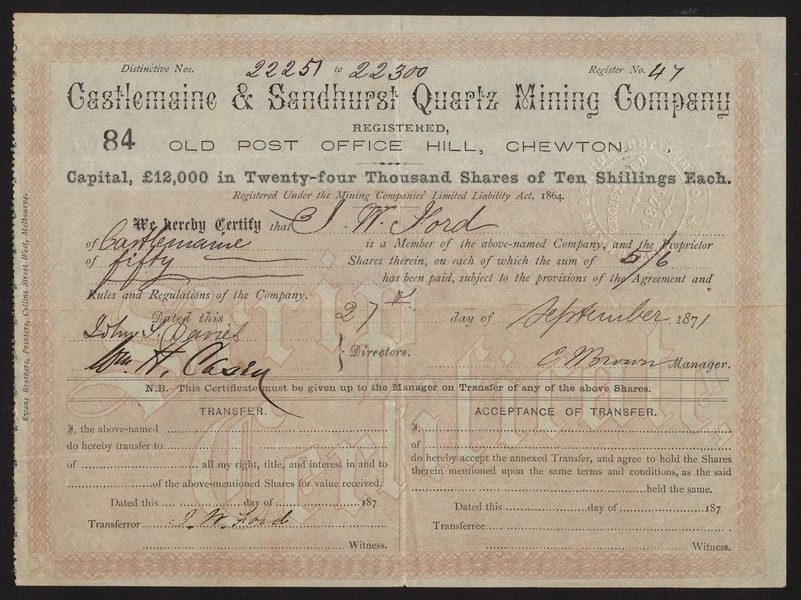 Distinctive Nos. 22251 to 22300 Register No. 47
Castlemaine & Sandhurst Quartz Mining Company
REGISTERED,
84 OLD POST OFFICE HILL, CHEWTON.
Capital, £12,000 in Twenty-four Thousand Shares of Ten Shillings Each.
Registered Under the Mining Companies' Limited Liability Act, 1864.
We hereby Certify that J. W. Ford
of Castlemaine is a Member of the above-named Company, and the Proprietor
of fifty Shares therein, on each of which the sum of 5/6
has been paid, subject to the provisions of the Agreement and
Rules and Regulations of the Company.
Dated this 27th day of September 1871
John S. Davies
Wm. H. Casey } Directors. C Brown Manager.
N.B. This Certificate must be given up to the Manager on Transfer of any of the above Shares.
TRANSFER.
I, the above-named
do hereby transfer to
of all my right, title, and interest in and to
of the above-mentioned Shares for value received.
Dated this day of 187
Transferror J. W. Ford
Witness.
ACCEPTANCE OF TRANSFER.
I,
of
do hereby accept the annexed Transfer, and agree to hold the Shares
therein mentioned upon the same terms and conditions, as the said
held the same.
Dated this day of 187
Transferee
Witness.
Scrip
Certificate
Evans Brothers, Printers, Collins Street West, Melbourne.